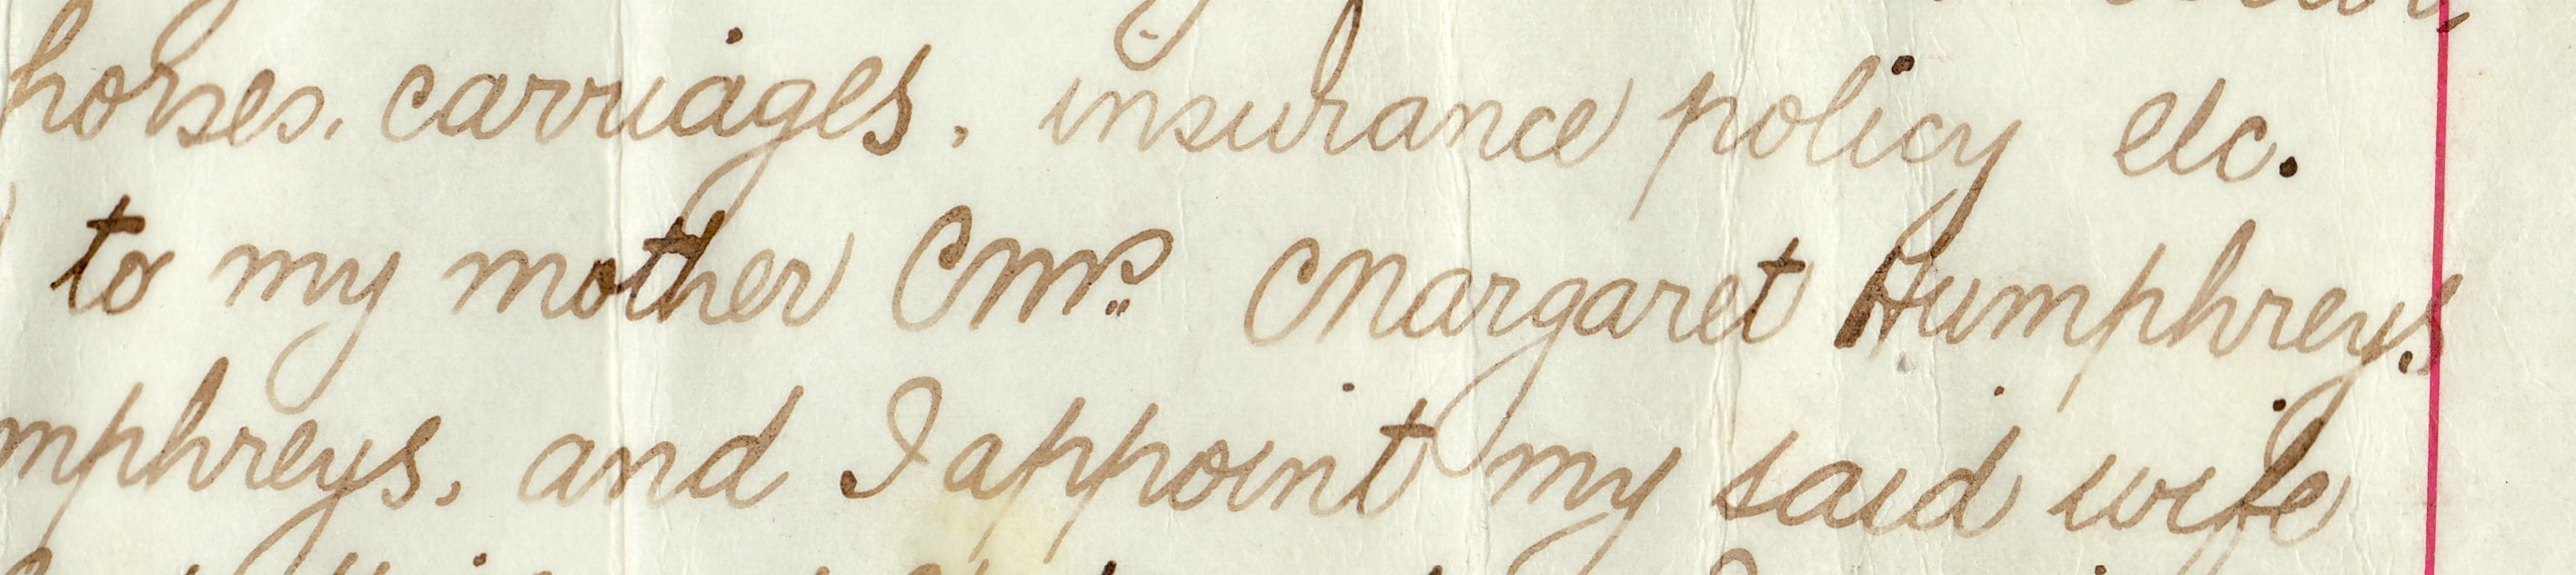 horses, carriages, insurance policy etc.
to my mother Mrs. Margaret Humphreys
mphreys, and I appoint my said wife